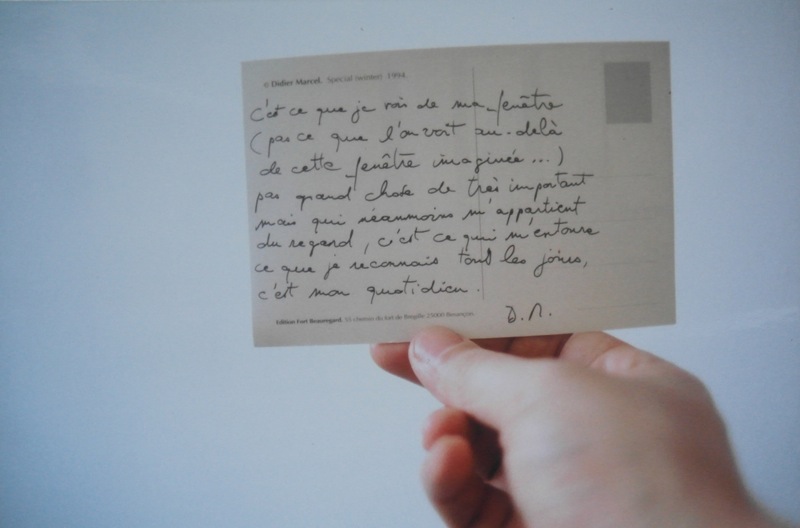 © Didier Marcel. Spécial (winter) 1994.
c'est ce que je vois de ma fenêtre
(pas ce que l'on voit au-delà
de cette fenêtre imaginée...)
pas grand chose de très important
mais qui néanmoins m'appartient
du regard, c'est ce qui m'entoure
ce que je reconnais tout les jours,
c'est mon quotidien.
D.M.
Edition Fort Beauregard. chemin du fort de Bregille 25000 Besançon.